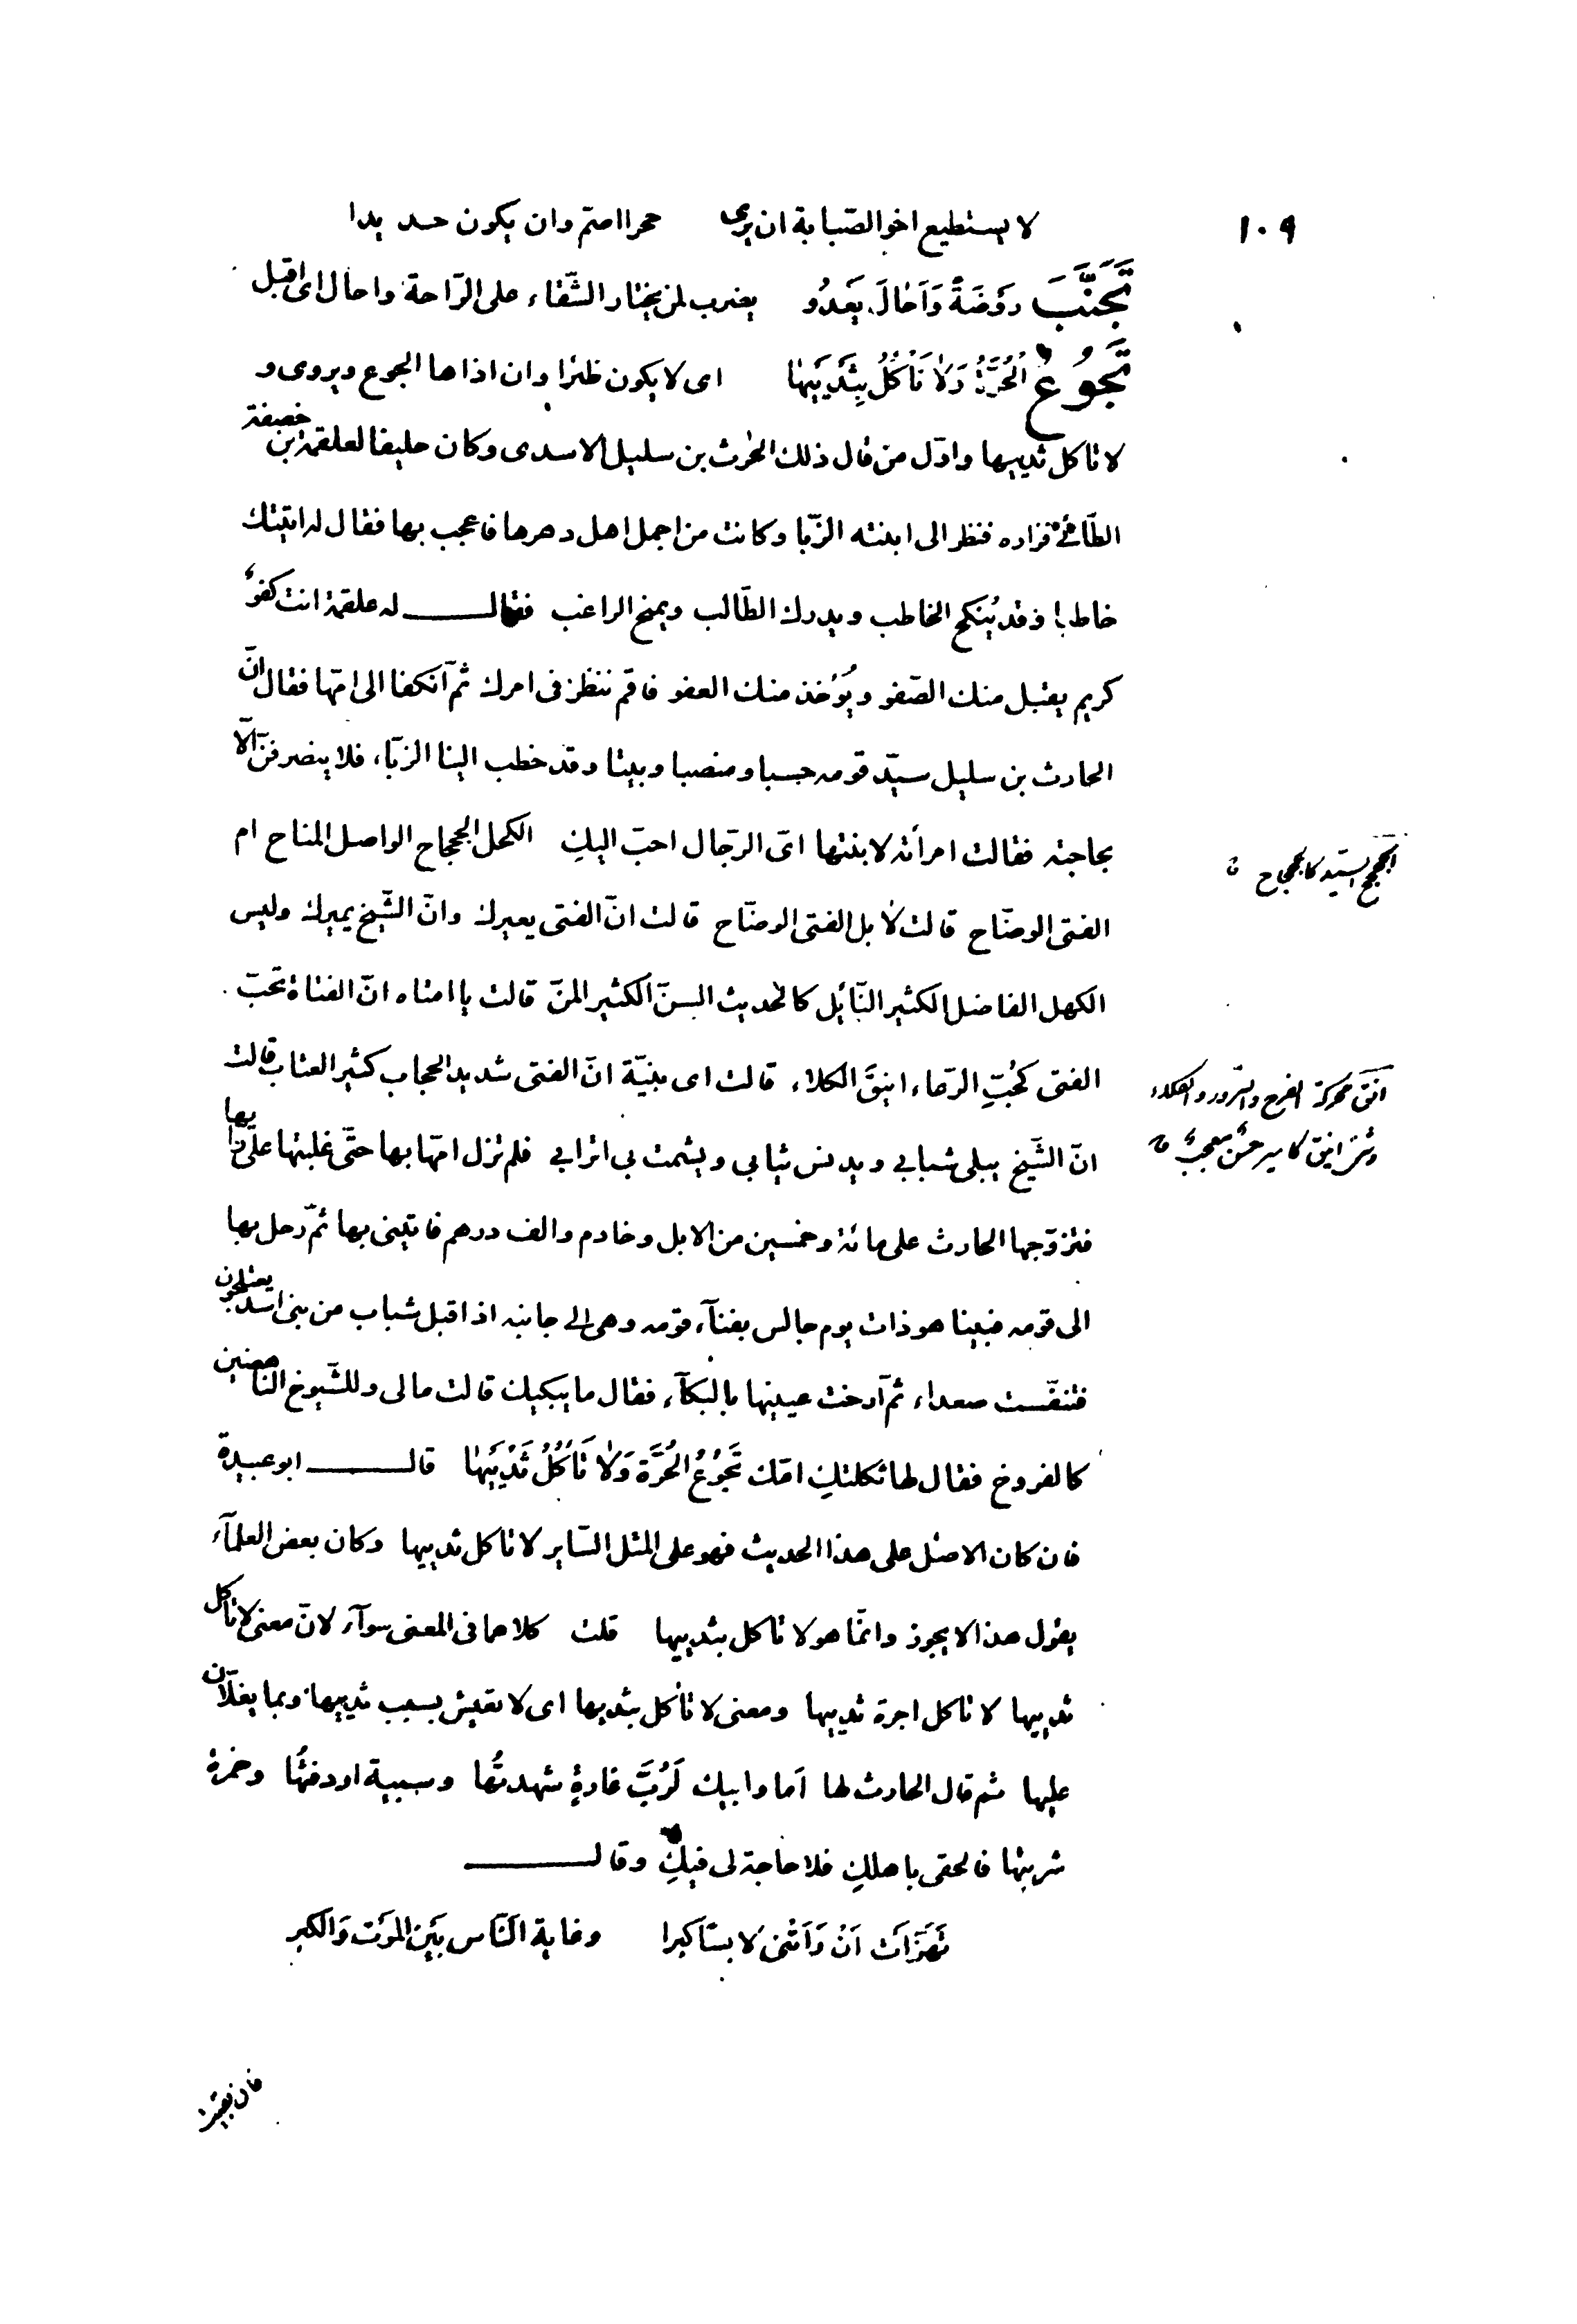 ١٠٩
لا يستطيع اخو الصّبابة ان يرى حجرا اصمّ وان يكون حديدا
تَجَنَّبَ رَوْضَةً وَاَحَالَ يَعْدُو يضرب لمن يختار الشّقاء على الرّاحة واحال اى اقبل
تَجُوعُ الْحُرَّةُ وَلَا تَأْكُلُ بِثَدْيَيْهَا اى لا يكون ظئرا وان اذاها الجوع ويروى و
لا تاكل ثدييها واوّل من قال ذلك الحرث بن سليل الاسدى وكان حليفا لعلقمة ابن خصيفة
الطّائى فزاره فنظر الى ابنته الزّبا وكانت من اجمل اهل دهرها فاعجب بها فقال له اتيتك
خاطبا وقد يُنكح الخاطب ويدرك الطّالب ويمنح الراغب فقال له علقمة انت كفوٌ
كريم يقبل منك الصّفو ويُؤخذ منك العفو فاقم ننظر فى امرك ثم آنكفا الى امّها فقال انّ
الحارث بن سليل سيّد قومه حسبا ومنصبا وبيتا وقد خطب الينا الزبّا، فلا ينصرفنّ الّا
بحاجته فقالت امرأته لابنتها اىّ الرّجال احبّ اليكِ الكهل الجحجاح الواصل المناح ام
الجحجح السيّد كالجحجاح
الفتى الوضّاح قالت لا بل الفتى الوضّاح قالت انّ الفتى يعيرك وانّ الشّيخ يميرك وليس
الكهل الفاضل الكثير النّايل كالحديث السنّ الكثير المنّ قالت يا امتاه انّ الفتاة تحبّ
الفتى كحُبّ الرّعاء انيقَ الكلاء قالت اى بنيّة انّ الفتى شديد الحجاب كثير العتاب قالت
انق محركة الفرح والسّرور والكلاء
انّ الشّيخ يبلى شبابي ويدنس ثيابي ويشمت بي اترابي فلم تزل امّها بها حتّى غلبتها على رايها
وشئ انيق كامير حسنٌ معجبٌ
فتزوّجها الحارث على مائة وخمسين من الابل وخادم والف درهم فابتنى بها ثمّ رحل بها
الى قومه فبينا هو ذات يوم جالس بفنآء قومه وهى الى جانبه اذ اقبل شباب من بنى اسد يعتلجون
فتنفّست صعداء ثم آرخت عينيها بالبكآء فقال ما يبكيك قالت مالى وللشّيوخ الناهضين
كالفروخ فقال لها ثكلتكِ امّك تَجُوعُ الْحُرَّة وَلَا تَأْكُلُ ثَدْيَيْهَا قال ابو عبيدة
فان كان الاصل على هذا الحديث فهو على المثل السّاير لا تاكل ثدييها وكان بعض العلمآء
يقول هذا لا يجوز وانّما هو لا تاكل بثدييها قلت كلاهما فى المعنى سوآء لانّ معنى لا تاكل
ثدييها لا تاكل اجرة ثدييها ومعنى لا تأكل بثديها اى لا تعيش بسبب ثدييها وبما يغلّان
عليها ثم قال الحارث لها اَما وابيك لَرُبَّ غارةٍ شهدتُها وسبيية اردفتُها وخمرة
شربتها فالحقى باهلكِ فلا حاجة لى فيكِ وقال
تَهَزَّأَتْ اَنْ رَاَتْنى لابسًا كبرا وغاية النّاس بَيْن الْمَوْت وَالكبر
فان بقيت